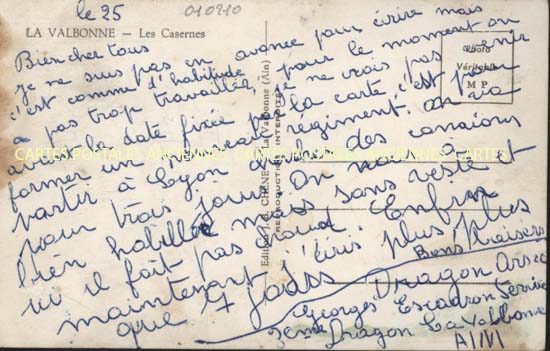 le 25
010210
LA VALBONNE — Les Casernes
Bien cher tous
je ne suis pas en avance pour écrire mais
c'est comme d'habitude pour le moment on
a pas trop travailler, je ne vois pas venir
la date fixée sur la carte, c'est pour
former un régiment. on va
partir à Lyon des camions
pour trois jours. On ne
bien habillé mais sans veste et
ici il fait pas chaud. Enfin
maintenant j'écris plus, plus
que 7 jours
Bons Baisers
Dragon
Georges Escadron
2eme Dragon La Valbonne
AIN
Photo
Véritable
M P
La Valbonne (Ain)
REPRODUCTION INTERDITE
CARTES POSTALES ANCIENNES CARTES POSTALES ANCIENNES CARTES